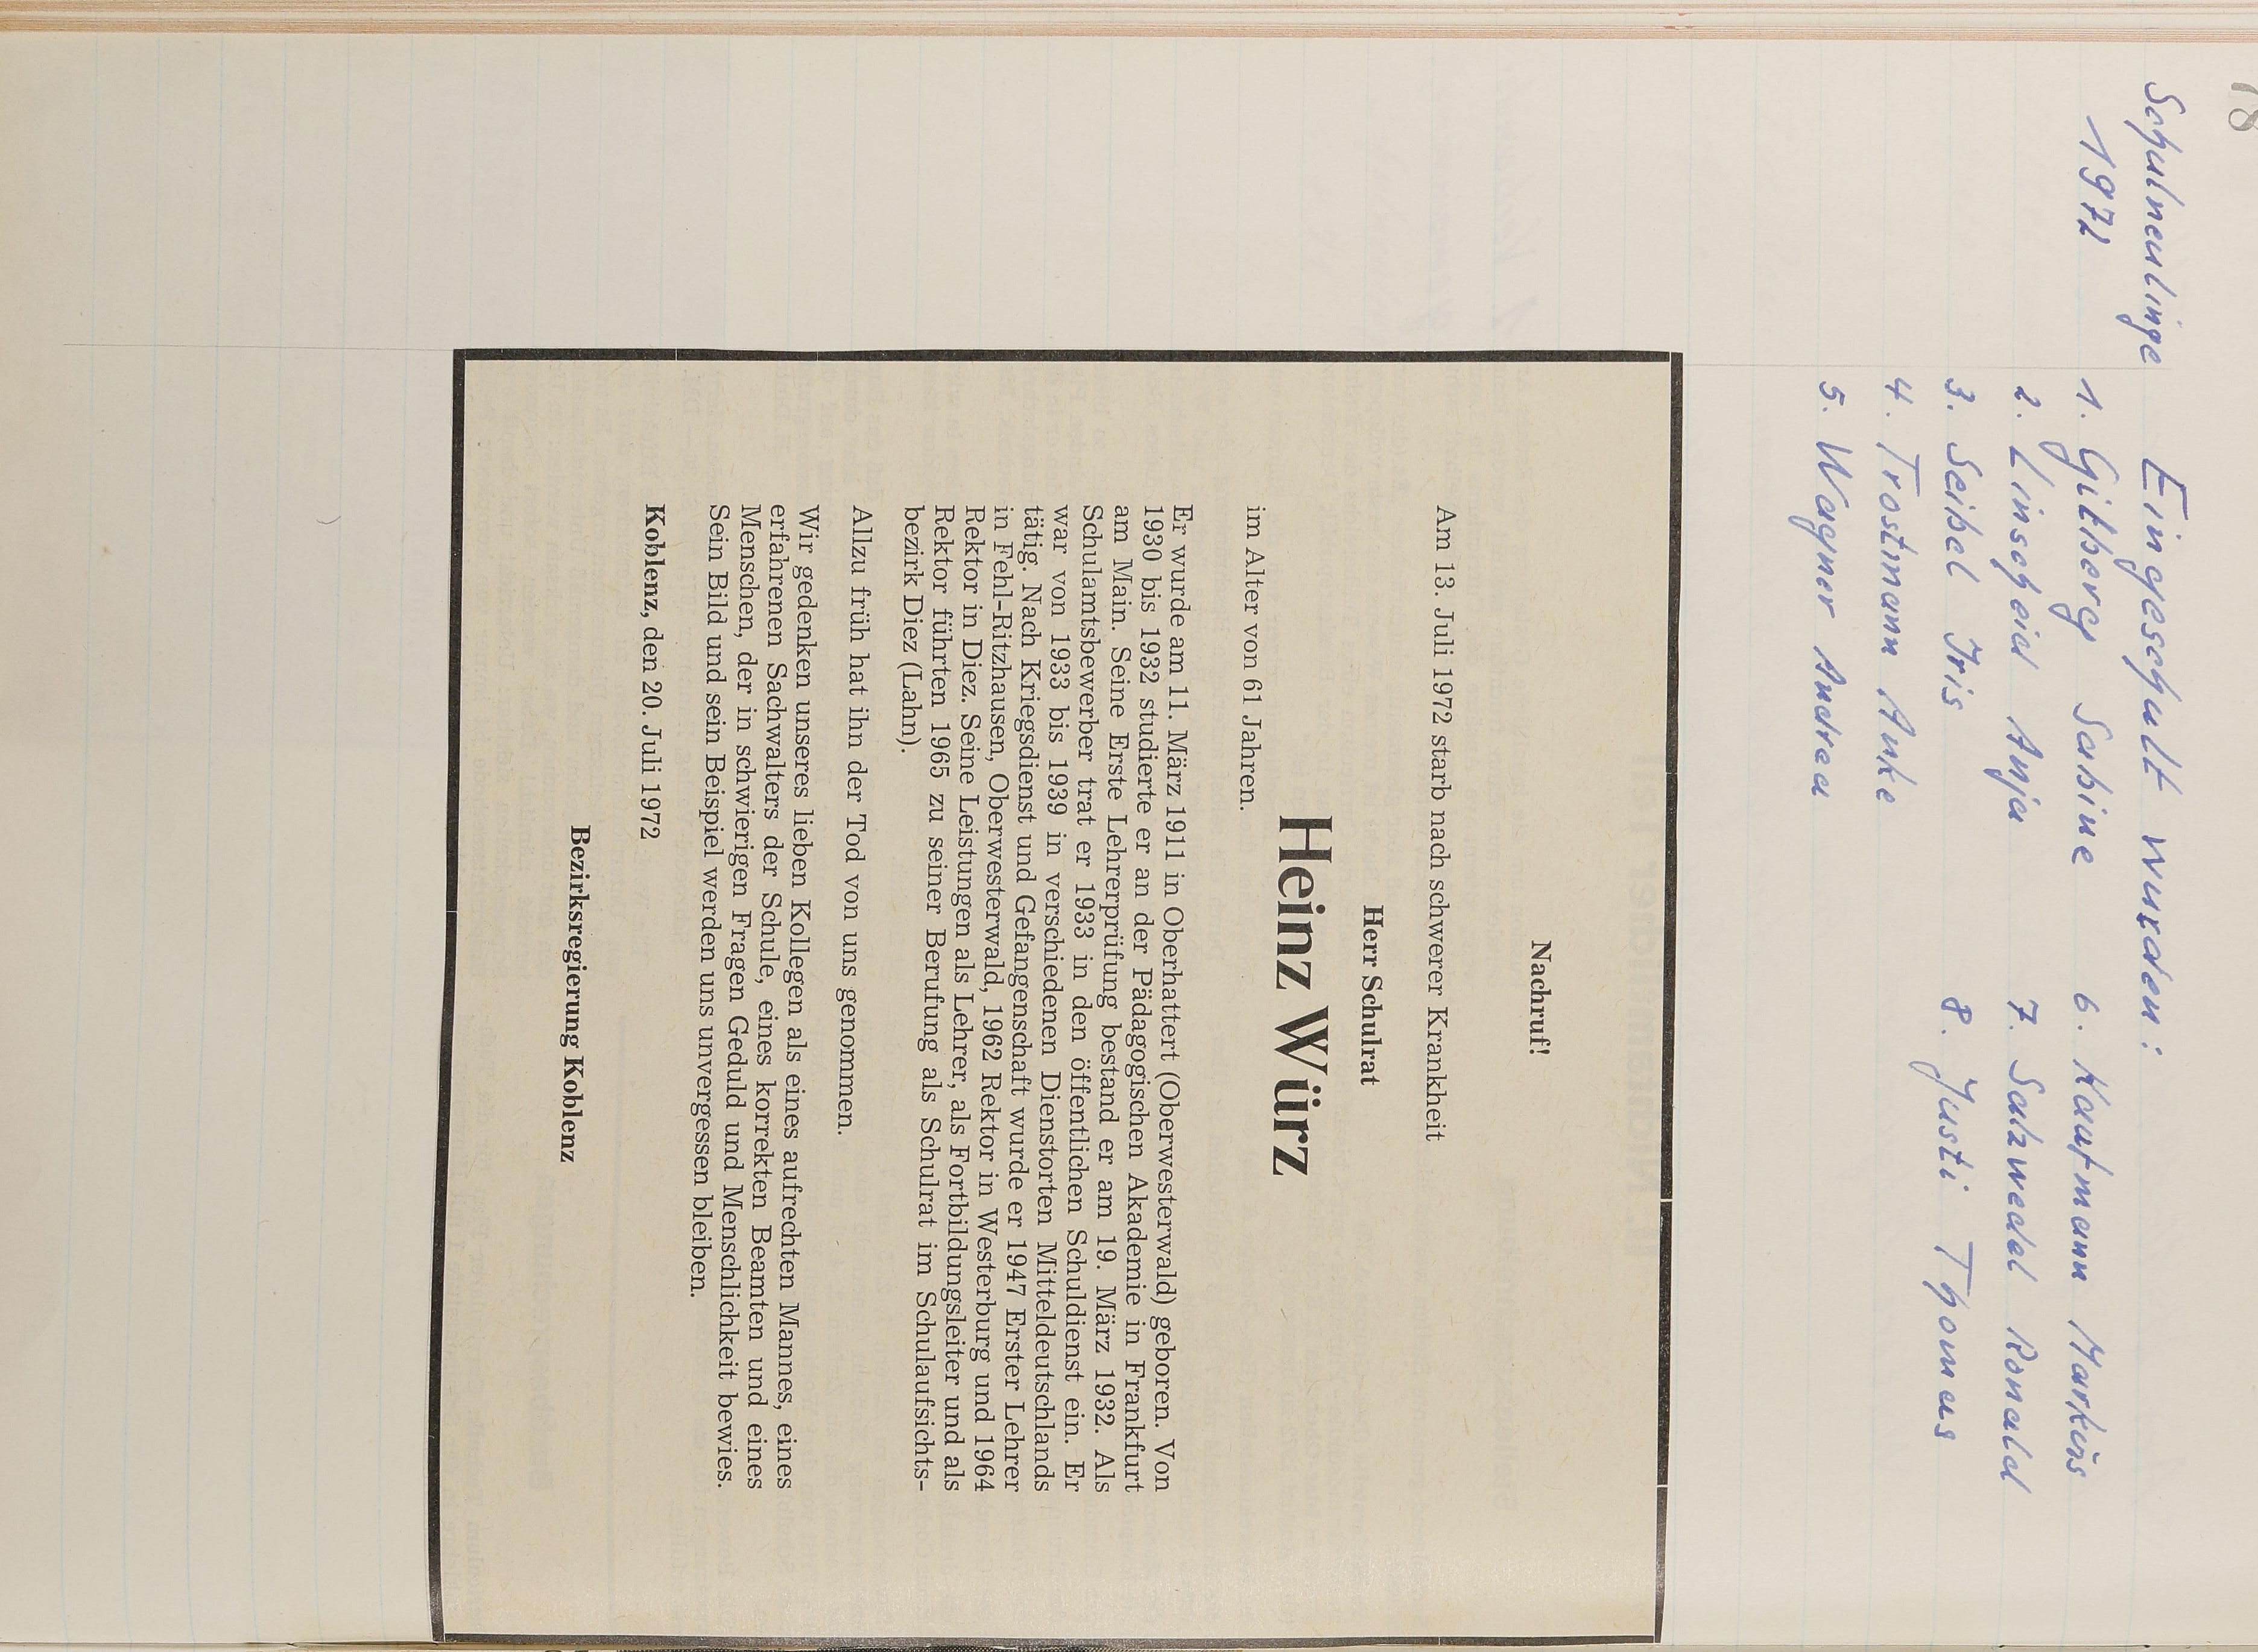 78
Schulneulinge
1972
Eingeschult wurden:
1. Gilberg Sabine
2. Linscheid Anja
3. Seibel Iris
4. Trostmann Anke
5. Wagner Andrea
6. Kaufmann Markus
7. Salzwedel Ronald
8. Justi Thomas
Nachruf!
Am 13. Juli 1972 starb nach schwerer Krankheit
Herr Schulrat
Heinz Würz
im Alter von 61 Jahren.
Er wurde am 11. März 1911 in Oberhattert (Oberwesterwald) geboren. Von
1930 bis 1932 studierte er an der Pädagogischen Akademie in Frankfurt
am Main. Seine Erste Lehrerprüfung bestand er am 19. März 1932. Als
Schulamtsbewerber trat er 1933 in den öffentlichen Schuldienst ein. Er
war von 1933 bis 1939 in verschiedenen Dienstorten Mitteldeutschlands
tätig. Nach Kriegsdienst und Gefangenschaft wurde er 1947 Erster Lehrer
in Fehl-Ritzhausen, Oberwesterwald, 1962 Rektor in Westerburg und 1964
Rektor in Diez. Seine Leistungen als Lehrer, als Fortbildungsleiter und als
Rektor führten 1965 zu seiner Berufung als Schulrat im Schulaufsichts-
bezirk Diez (Lahn).
Allzu früh hat ihn der Tod von uns genommen.
Wir gedenken unseres lieben Kollegen als eines aufrechten Mannes, eines
erfahrenen Sachwalters der Schule, eines korrekten Beamten und eines
Menschen, der in schwierigen Fragen Geduld und Menschlichkeit bewies.
Sein Bild und sein Beispiel werden uns unvergessen bleiben.
Koblenz, den 20. Juli 1972
Bezirksregierung Koblenz